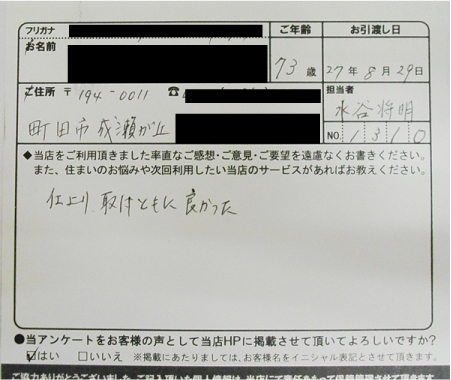 フリガナ
お名前
ご年齢
73歳
お引渡し日
27年8月29日
ご住所 〒194-0011 ☎
町田市成瀬が丘
担当者
水谷将明
NO 1310
◆当店をご利用頂きました率直なご感想・ご意見・ご要望を遠慮なくお書きください。
また、住まいのお悩みや次回利用したい当店のサービスがあればお教えください。
仕上り、取付ともに良かった
●当アンケートをお客様の声として当店HPに掲載させて頂いてよろしいですか?
☑はい □いいえ ※掲載にあたりましては、お客様名をイニシャル表記とさせて頂きます。
ご協力ありがとうございました。ご記入頂いた個人情報は、当店にて責任をもって保管管理させて頂きます。